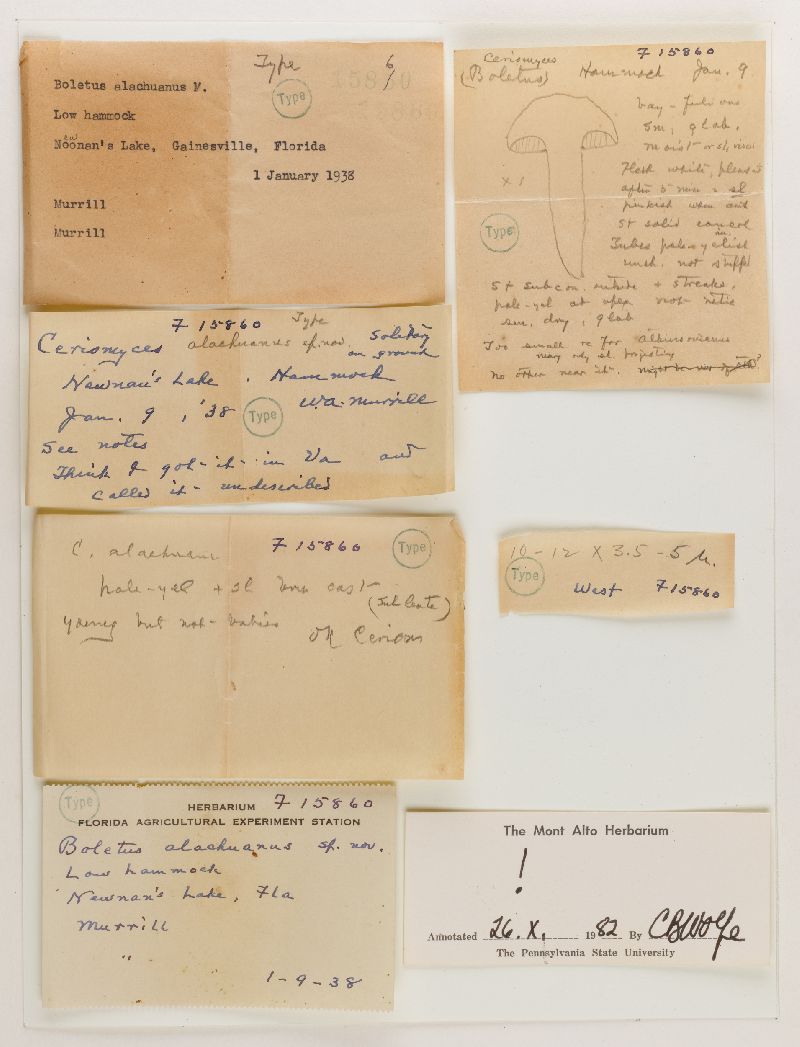 Type
6
15860
Type
Boletus alachuanus M.
Low hammock
ew
Noonan's Lake, Gainesville, Florida
1 January 1938
Murrill
Murrill
F 15860
Ceriomyces
(Boletus) Hammock Jan. 9
bay-fulvous
5m; glab,
moist or sl, viscid
Flesh white, pleasant
after 5 min + sl
pinkish when cut
x 1
Type
St solid concol
Tubes pale-yelish
unch. not stuffed
St subcon. + streaks,
pale-yel at apex not retic
dry, glab
Too small for
may only sl. projecting
No other near it.
F 15860 Type
Ceriomyces alachuanus sp. nov. solitary
on ground
Newnan's Lake. Hammock
Jan. 9, '38 Type W.A. Murrill
See notes
Think I got it in Va and
called it undescribed
C. alachuanus F 15860 Type
pale-yel + sl brn cast
(sub lente)
young but not
OK Cerioms
10-12 X 3.5-5 µ.
Type
West F 15860
Type
HERBARIUM F 15860
FLORIDA AGRICULTURAL EXPERIMENT STATION
Boletus alachuanus sp. nov.
Low hammock
Newnan's Lake, Fla
Murrill
"
1-9-38
The Mont Alto Herbarium
!
Annotated 26.X, 1982 By CBWolfe
The Pennsylvania State University